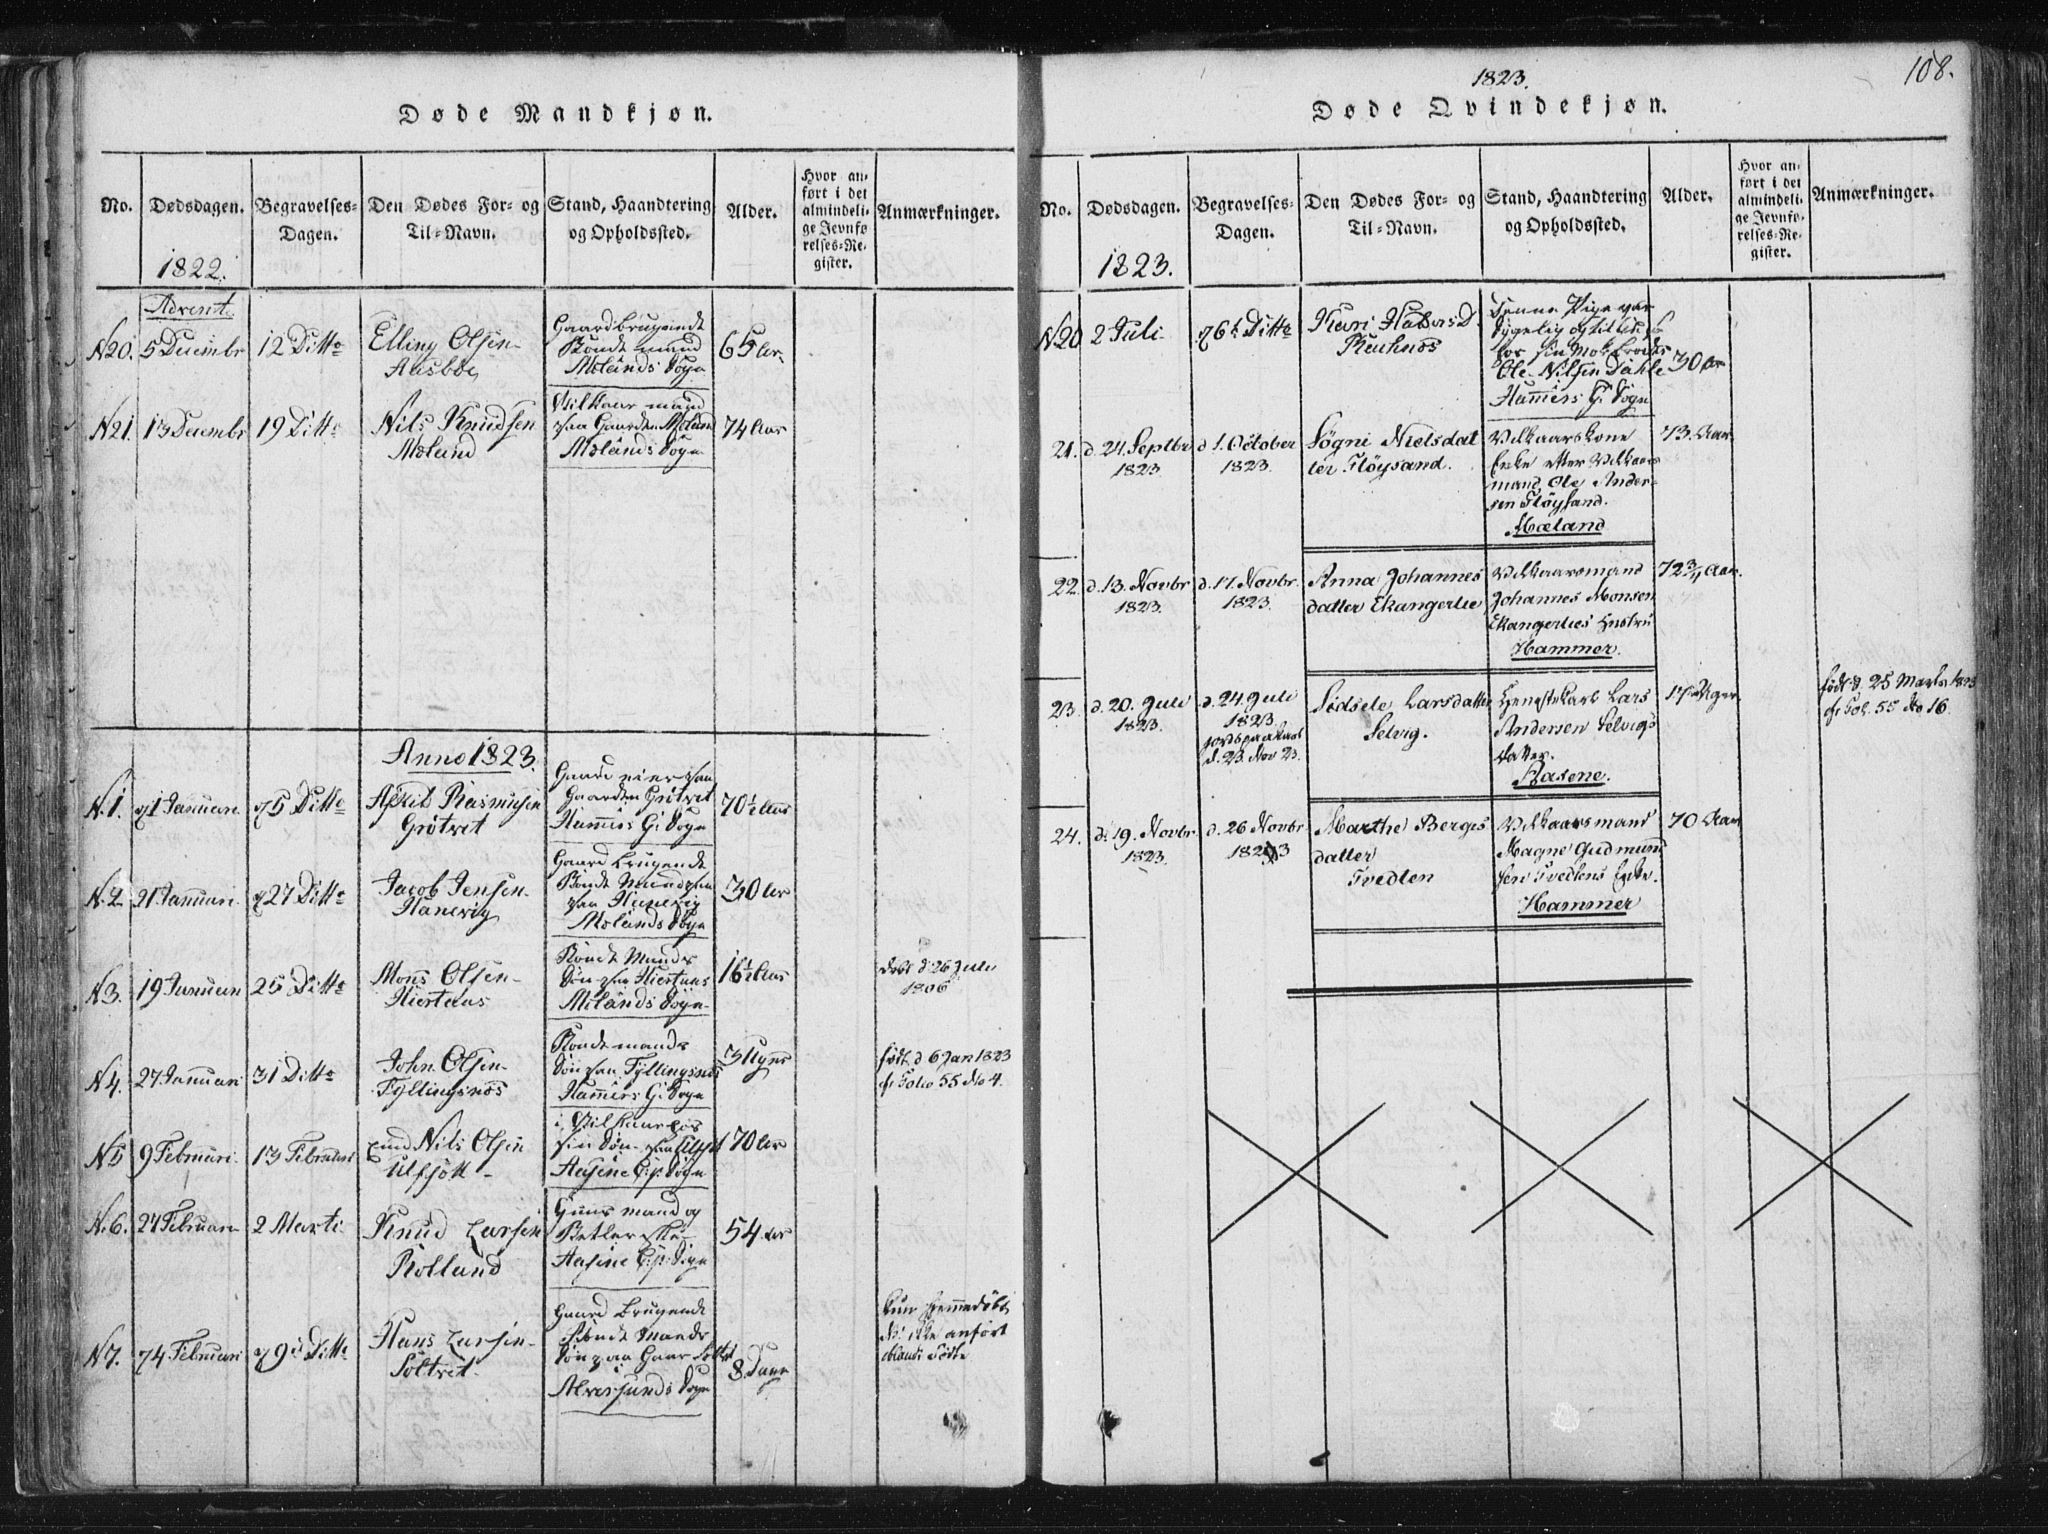 Døde Mandkjøn.
No.
Dødsdagen.
Begravelses-
Dagen.
Den Dødes For- og
Til-Navn.
Stand, Haandtering
og Opholdssted.
Alder.
Hvor an-
ført i det
almindeli-
ge Jevnfø-
relses-Re-
gister.
Anmærkninger.
1822.
Advent
N20.
5 Decembr
12 Ditto
Elling Olsen
Aasboe
Gaardbrugende
Bonde mand
Mœlands Sogn
65 Ar
N21.
13 Decembr
19 Ditto
Nils Knudsen
Mœland
Vilkaar mand
paa Gaarden Mœland
Mœlands Sogn
74 Aar
Anno 1823.
N.1.
Januari
Ditto
Rasmusen
Grøtvet
Gaard eier paa
Gaarden Grøtvet
Hammers G: Sogn
70½ Aar
N.2.
21 Januari
27 Ditto
Jacob Jensen
Hanevig
Gaard brugende
Bonde Mand
paa Hanevig
Mœlands Sogn
30 Ar
N3.
19 Januari
25 Ditto
Mons Olsen
Hiertaas
Bonde Mands
Søn paa Hiertaas
Mœlands Sogn
16½ Aar
Døbt d. 26 Juli
1806
N4.
27 Januari
31 Ditto
John Olsen
Fyllingsnœs
Bonde mands
Søn paa Fyllingsnœs
Hammers G: Sogn
3 Uger
født d 6 Jan 1823
cfr Folio 55 No 4.
N5
9 Februari
13 Februari
Nils Olsen
i Vilkaar hos
sin Søn
Aasene Sogn
70 Ar
N.6.
27 Februari
2 Marti
Knud Larsen
Rolland
mand og
Betler
Aasene Sogn
54 Ar
N7.
Februari
Ditto
Hans Larsen
Soltvet
Gaard brugende
Bonde Mands
Søn paa
Alversunds Sogn
8 Dage
kun hjemmedøbt
ikke anført
blandt Fødte
1823.
108.
Døde Qvindekjøn.
No.
Dødsdagen.
Begravelses-
Dagen.
Den Dødes For- og
Til-Navn.
Stand, Haandtering
og Opholdssted.
Alder.
Hvor an-
ført i det
almindeli-
ge Jevnfø-
relses-Re-
gister.
Anmærkninger.
1823.
N20
2 Juli
Ditto
Kari HalvorsD.
Denne Pige var
sygelig og til
for sin
Ole Nilsen Dahle
Hammers G: Sogn
30 Ar
21.
d. 24. Septbr
1823
d. 1. October
1823.
Søgni Nielsdat
ter Fløysand.
Vilkaarskone
Enke efter Vilkaars
mand Ole Ander-
sen Fløysand.
Mæland
73. Aar
22.
d. 13. Novbr
1823.
d. 17. Novbr.
1823.
Anna Johannes
datter Ekangerlie
Vilkaarsmand
Johannes Monsen
Ekangerlies Hustru
Hammer.
72 3/4 Aar.
23.
d. 20. Juli
1823.
d. 24. Juli
1823.
jordspaakast
d. 23. Nov 23.
Sidsele Larsdatter
Selvig.
Lars
Andersen Selvigs
datter.
Aasene.
17 Uger
født d. 25 Marts 1823
cfr Fol. 55 No 16.
24.
d. 19. Novbr.
1823.
d. 26 Novbr
1823
Marthe Berges
datter
Tvedten
Vilkaarsmand
Magne Gudmund
sen Tvedtens Enke.
Hammer
70 Aar